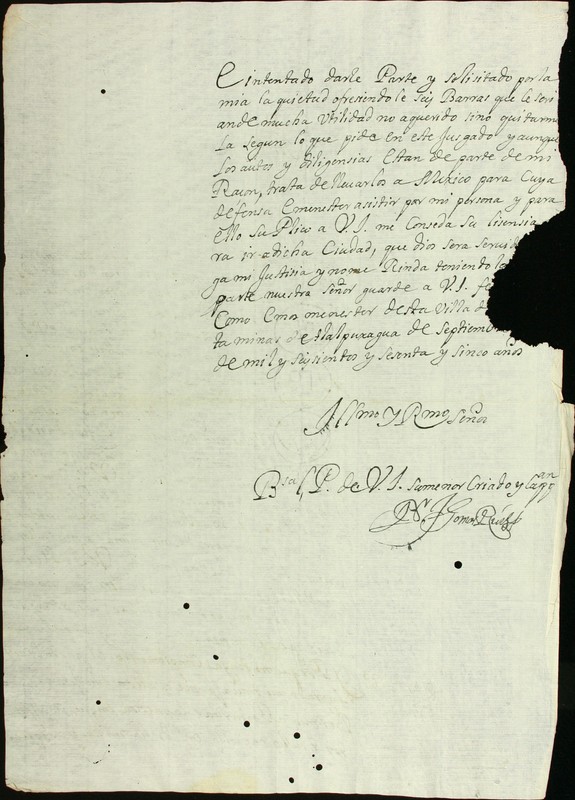 E intentado darle Parte y solisitado por la
mia la quietud ofresiendole seis Barras que le seri
an de mucha Utilidad no a querido sino quitarme
la segun lo que pide en este Jusgado y aunque
los autos y diligensias Estan de parte de mi
Raçon, trata de lleuarlos a Mexico para Cuya
defensa Emenester asistir por mi persona y para
ello suPlico a V.I. me Conseda su lisensia
ra ir a dicha Ciudad, que dios sera serui
ga mi Justisia y no me Rinda teniendo la
parte nuestra señor guarde a V.I.
Como Emos menester desta Villa d
ta minas de tlalpuxagua de septiemb
de mil y seysientos y sesenta y sinco años
Illmo y Rmo señor
B sal P. de V.I. su menor Criado y Capan
Br